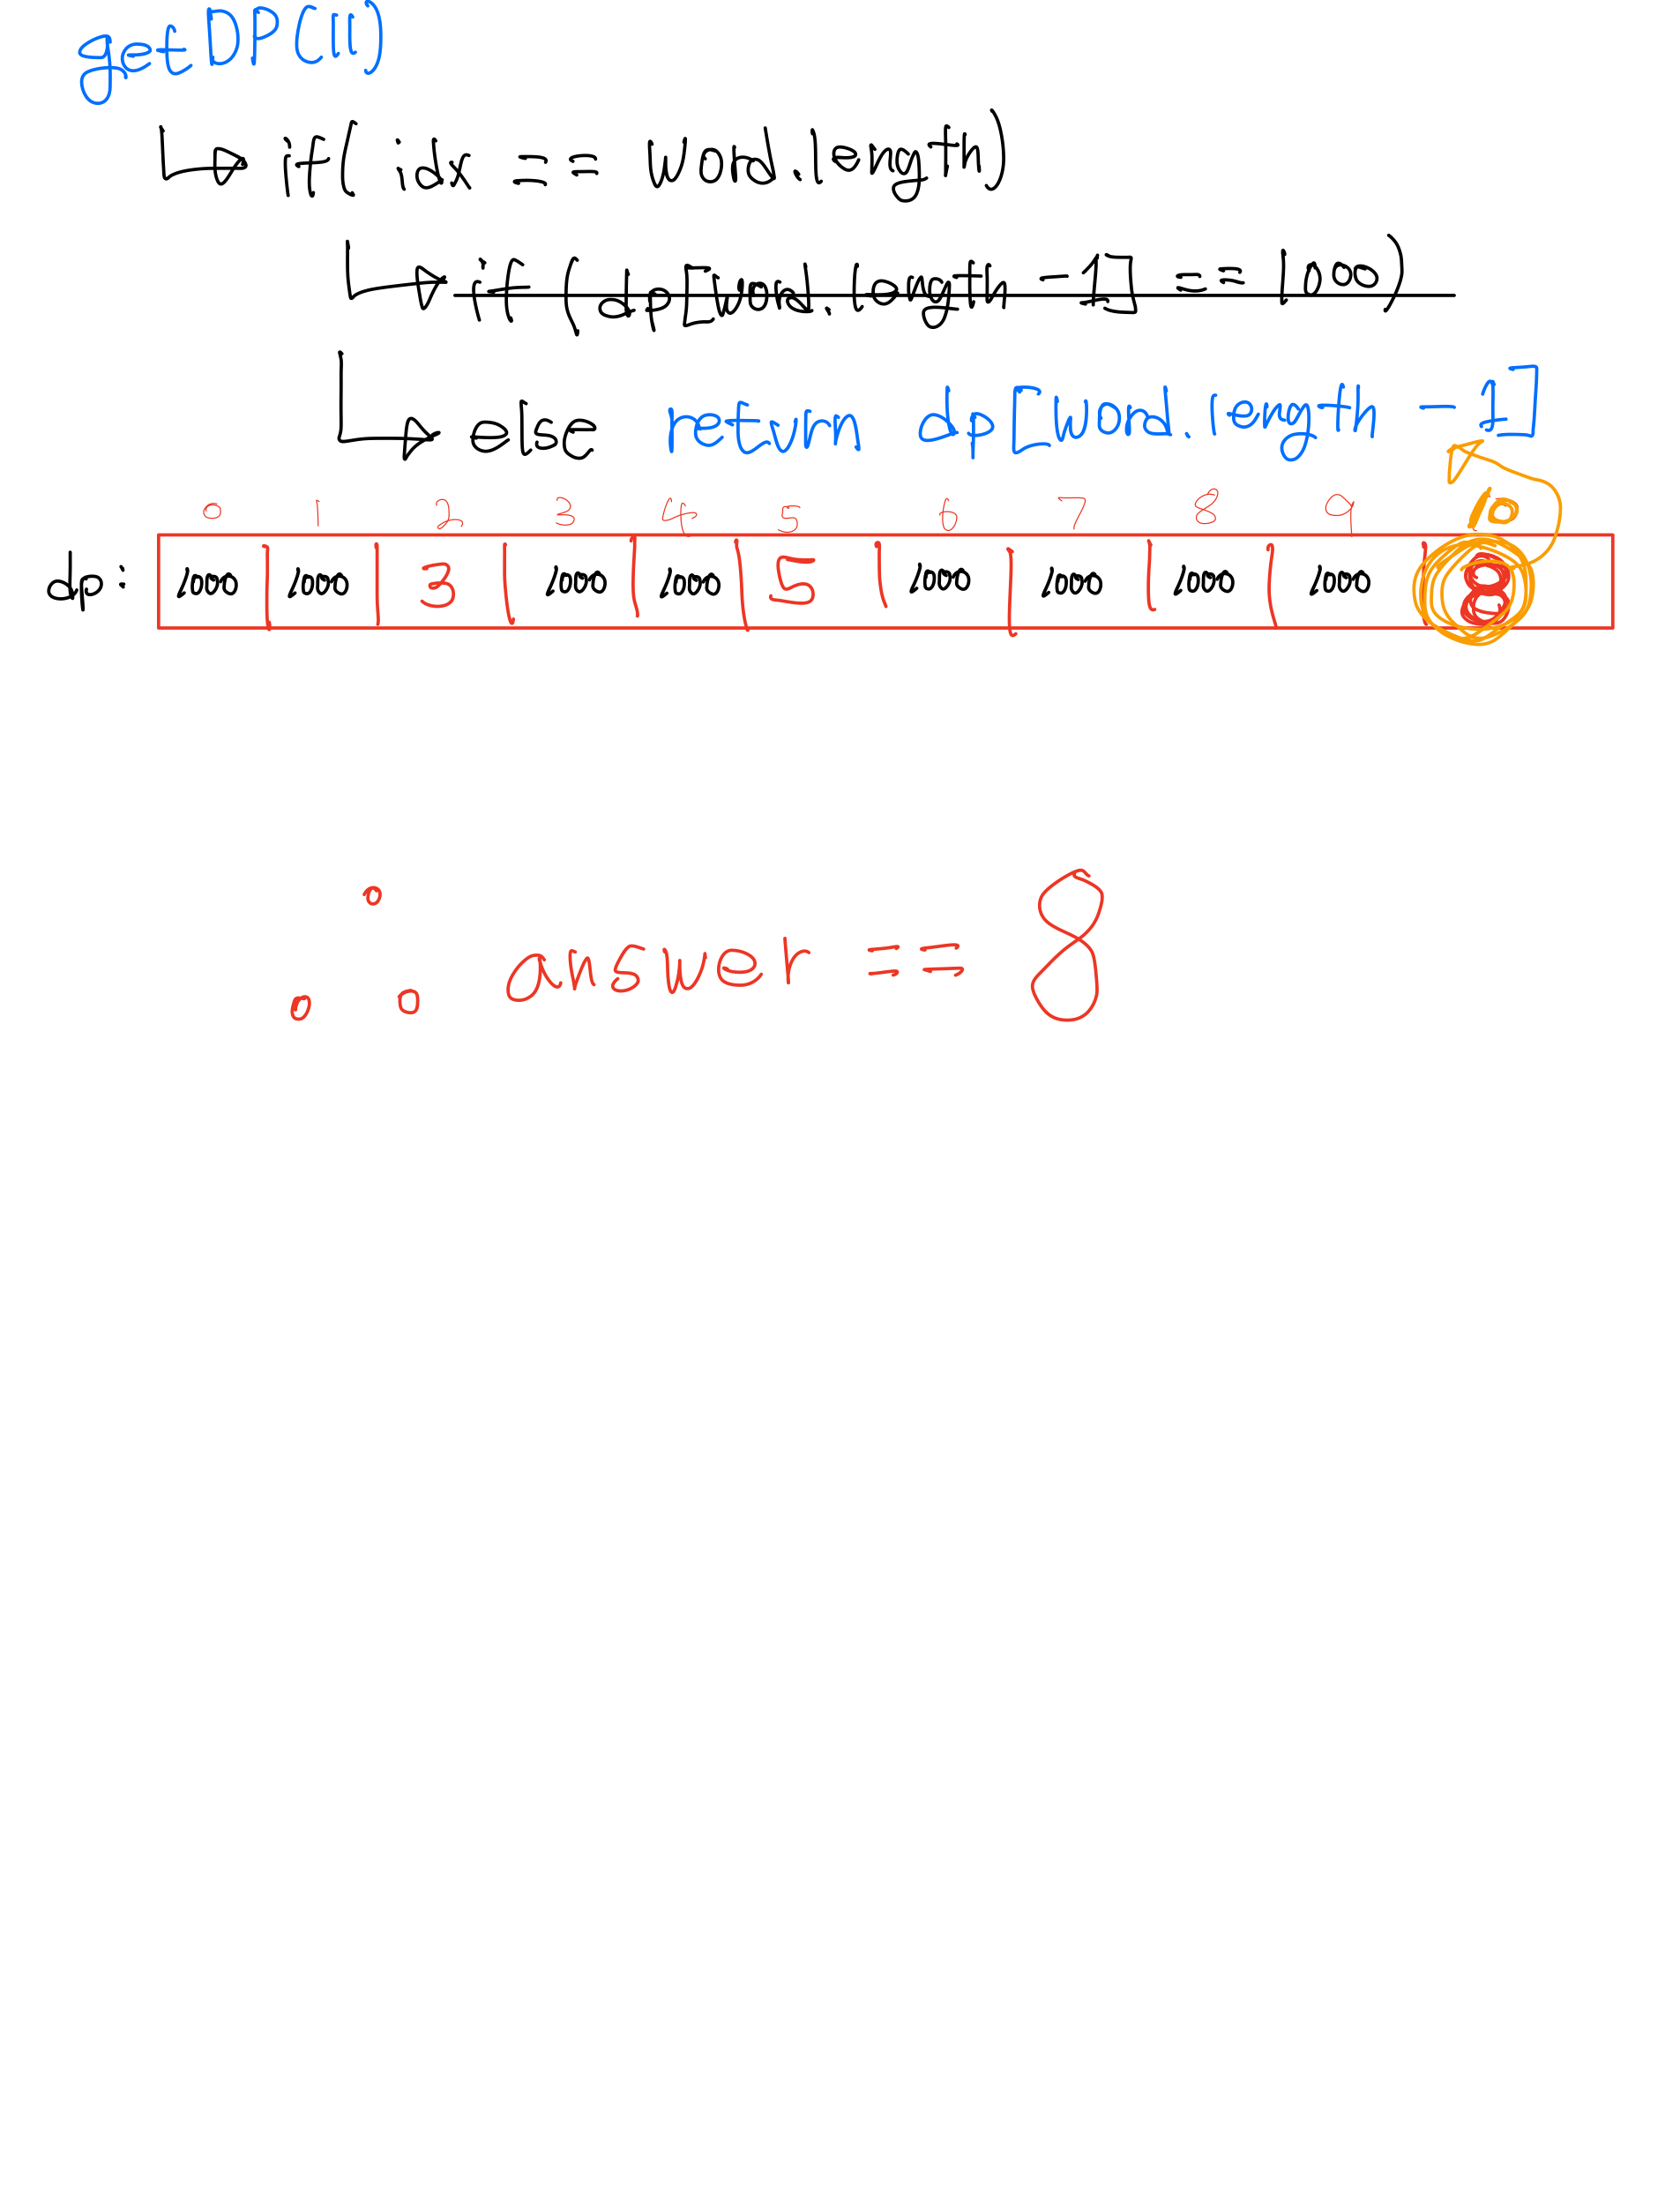 getDP(11)
↳ if( idx == word.length)
↳ if (dp[word.length -1] == 1,000)
↳ else return dp[word.length - 1]
0 1 2 3 4 5 6 7 8 9 10
dp: 1000 1000 3 1000 1000 5 1000 1000 1000 1000 8
∴ answer == 8